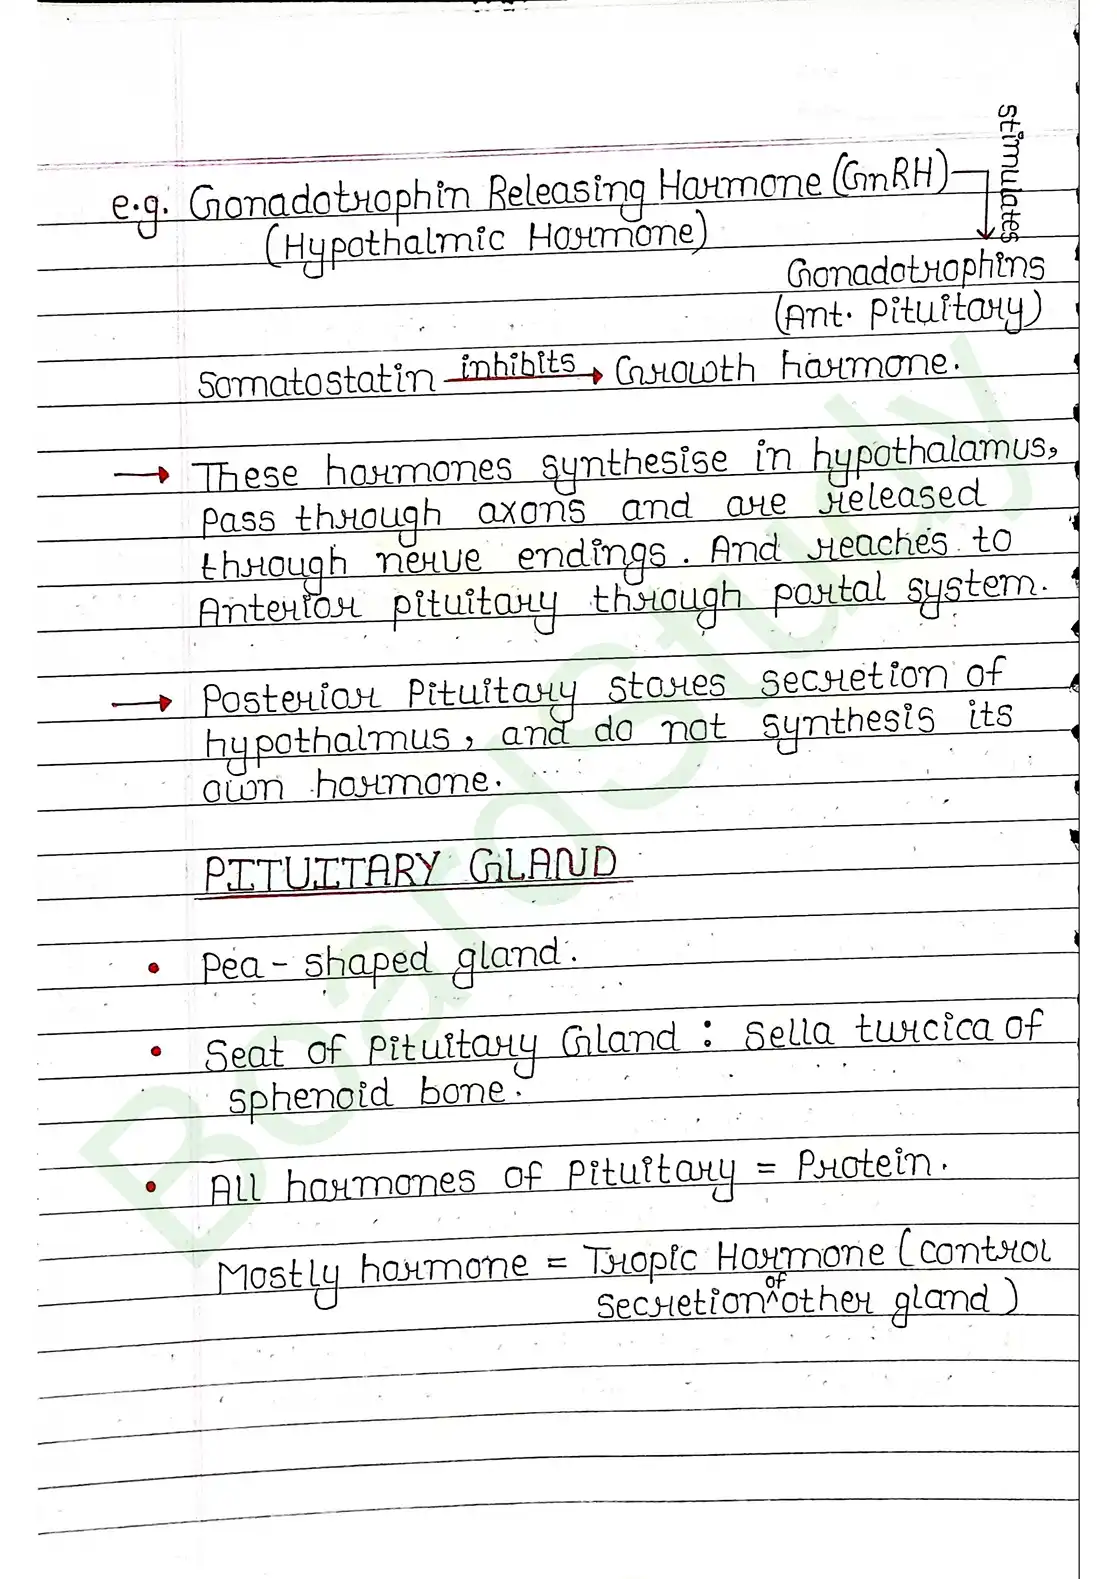 stimulates
e.g. Gonadotrophin Releasing Hormone (GnRH)
(Hypothalmic Hormone)
Gonadotrophins
(Ant. Pituitary)
Somatostatin inhibits Growth hormone.
→ These hormones synthesise in hypothalamus,
pass through axons and are released
through nerve endings. And reaches to
Anterior pituitary through portal system.
→ Posterior Pituitary stores secretion of
hypothalmus, and do not synthesis its
own hormone.
PITUITARY GLAND
• Pea-shaped gland.
• Seat of Pituitary Gland : Sella turcica of
sphenoid bone.
• All hormones of Pituitary = Protein.
Mostly hormone = Tropic Hormone (control
secretion of other gland)
BoardStudy